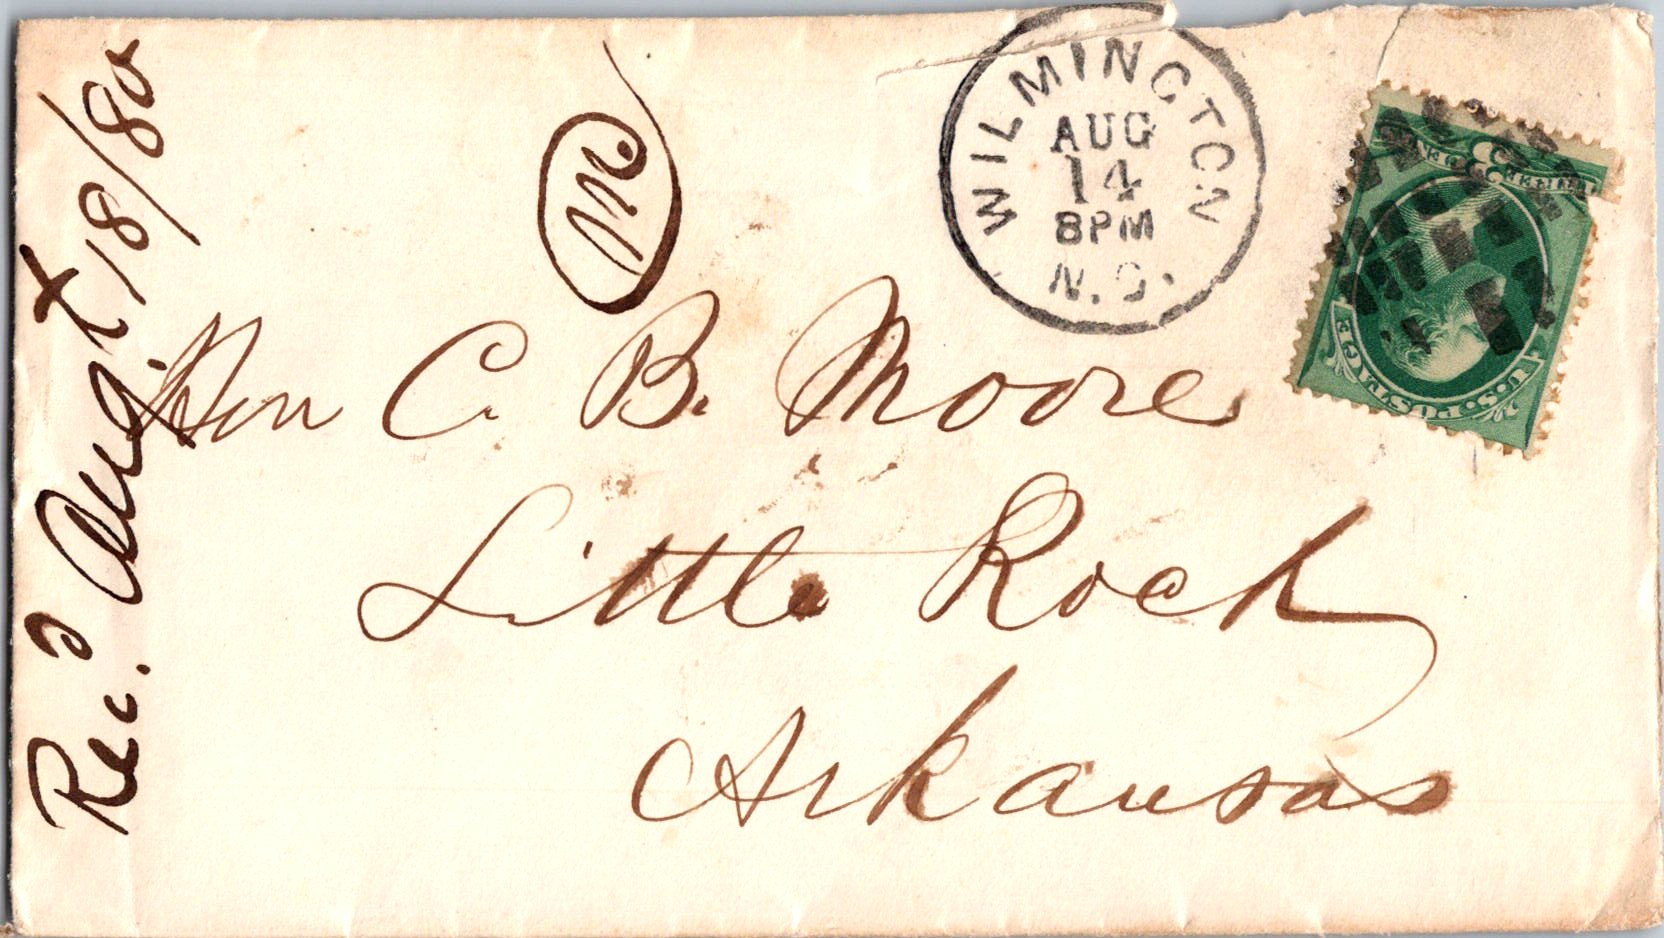 WILMINGTON
AUG
14
8PM
N.C.
U.S. POSTAGE
3
M
Hon C. B. Moore
Little Rock
Arkansas
Rec.d Aug.t 18/80